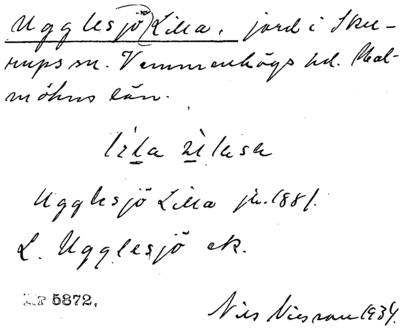 Ugglesjö Lilla, jord i Sku-
rups sn. Vemmenhögs hd. Mal-
möhus län.
Ugglesjö Lilla jb. 1881.
L. Ugglesjö ek.
5872.
Nils Nilsson 1934.